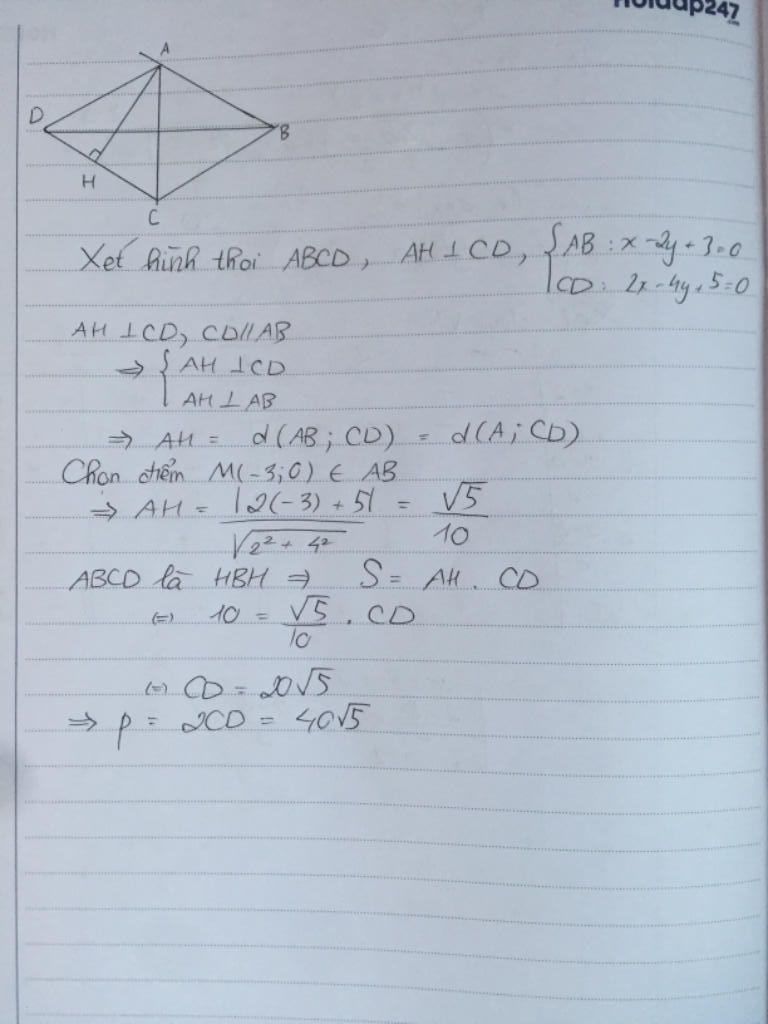 Hoidap247
.com
A
D
B
H
C
Xét hình thoi ABCD, AH ⊥ CD, { AB : x - 2y + 3 = 0
CD : 2x - 4y + 5 = 0
AH ⊥ CD, CD // AB
⇒ { AH ⊥ CD
AH ⊥ AB
⇒ AH = d(AB ; CD) = d(A ; CD)
Chọn điểm M(-3;0) ∈ AB
⇒ AH = |2(-3) + 5| / √(2² + 4²) = √5 / 10
ABCD là HBH ⇒ S = AH . CD
(=) 10 = √5 / 10 . CD
(=) CD = 20√5
⇒ p = 2CD = 40√5